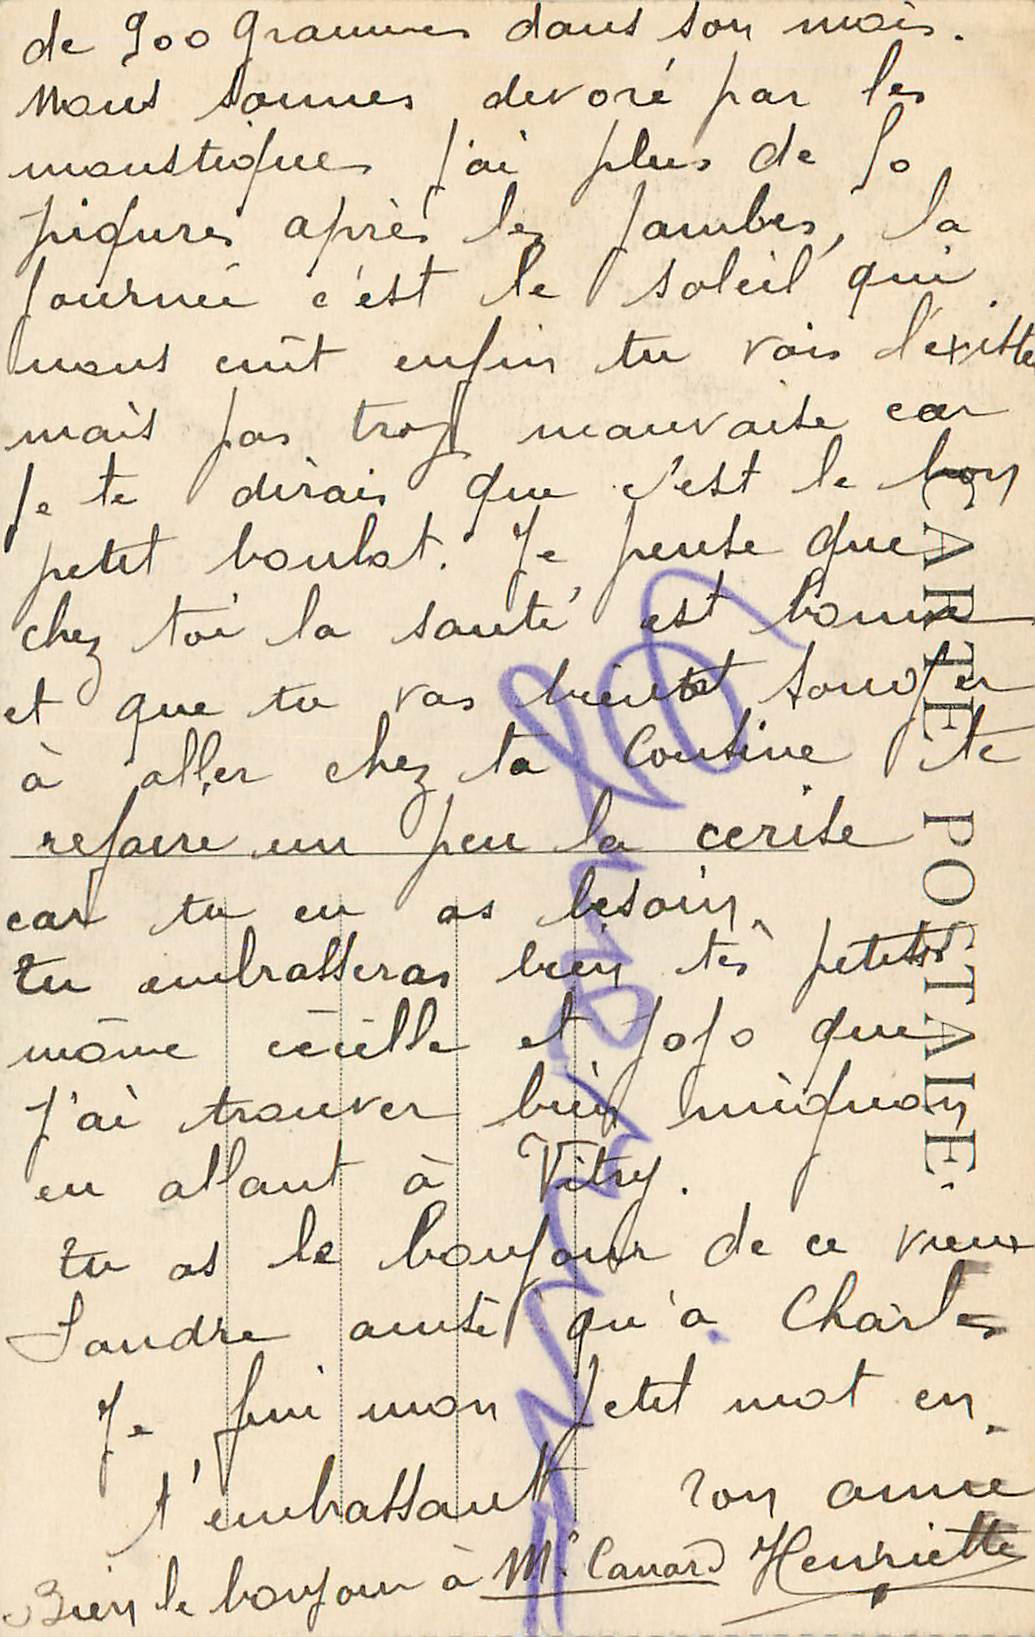 de 900 grammes dans son mois.
Nous sommes devoré par les
moustiques j'ai plus de 50
piqures après les jambes, la
journeé c'est le soleil qui
nous cuit enfin tu vois l'existe
mais pas trop mauvaise car
je te dirais que c'est le bon
petit boulot. Je pense que
chez toi la santé est bonne
et que tu vas bientôt songer
à aller chez ta Cousine te
refaire un peu la cerise
car tu en as besoin.
tu embrasseras bien tes petits
môme cécille et Jojo que
j'ai trouver bien mignon
en allant à Vitry.
tu as le bonjour de ce vieux
Landre ainsi qu'a Charles
Je fini mon petit mot en
t'embrassant ton amie
Henriette
Bien le bonjour à Mr Canard
CARTE POSTALE.